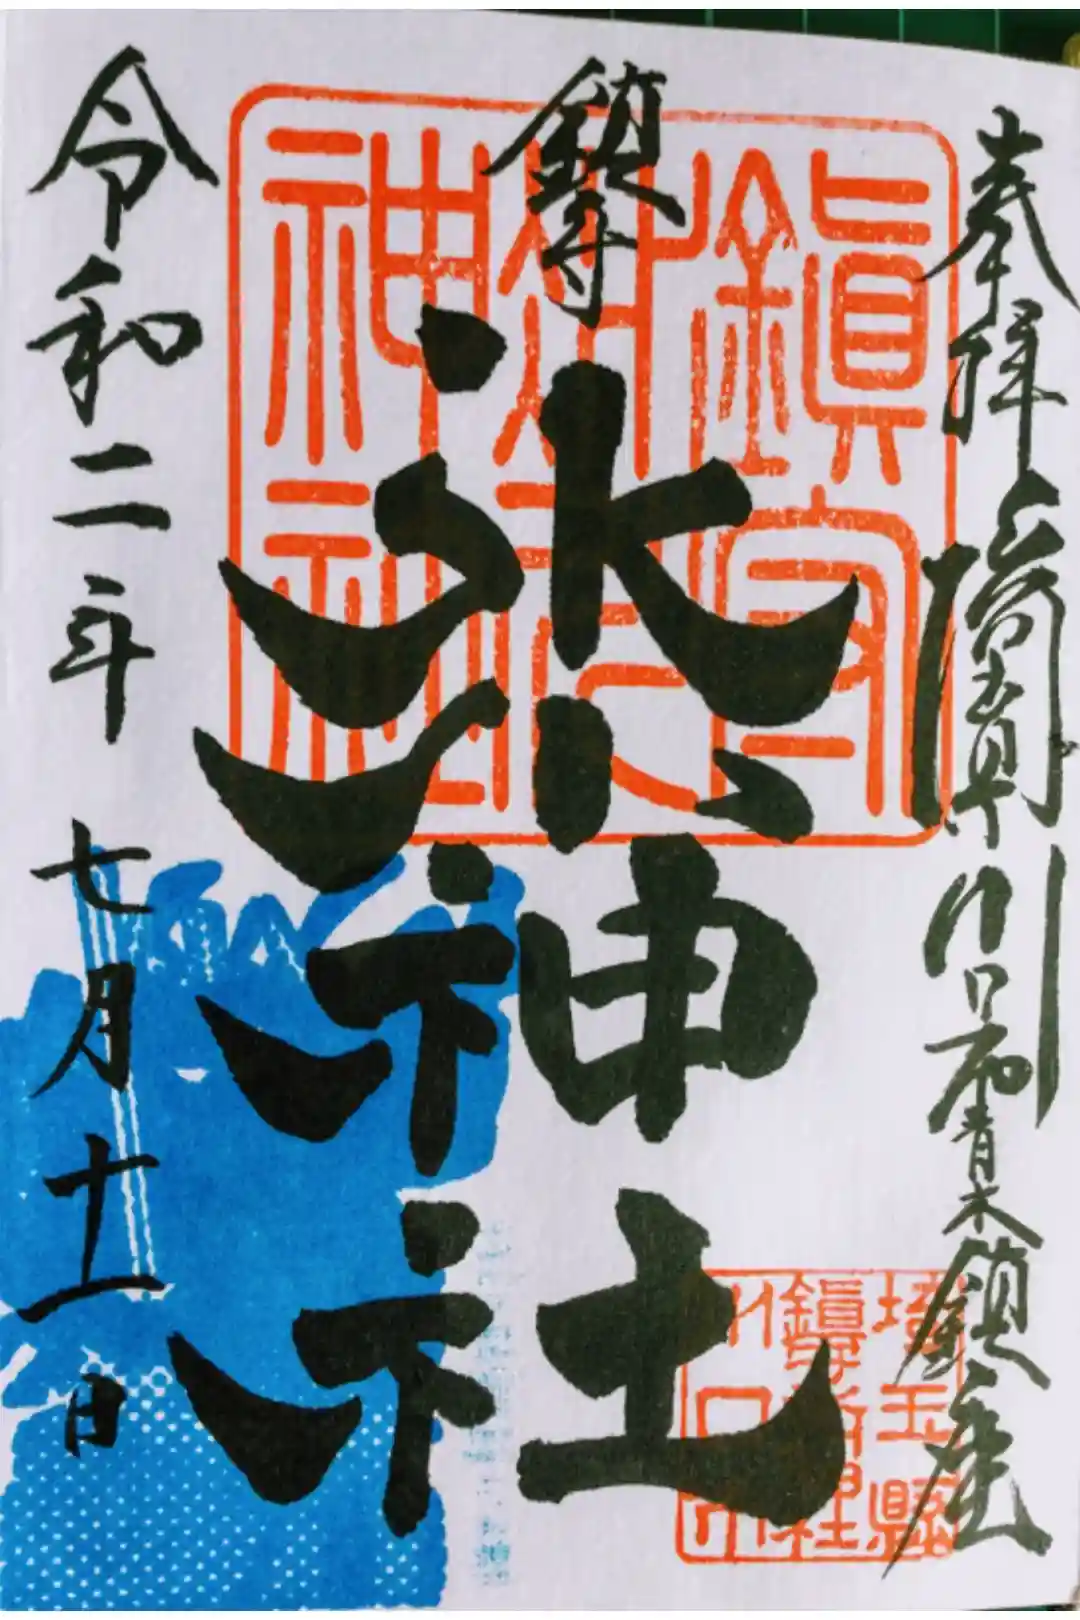 奉拝 埼玉県川口市青木鎮座
鎮守
氷川神社
令和二年 七月十一日
鎮守
氷川
神社
埼玉縣
鎮守氷川神社
川口市